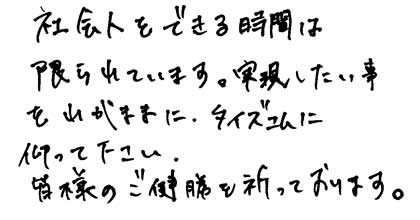 社会人をできる時間は
限られています。実現したい事
をわがままに、タイズムに
仰って下さい、
皆様のご健勝を祈っております。